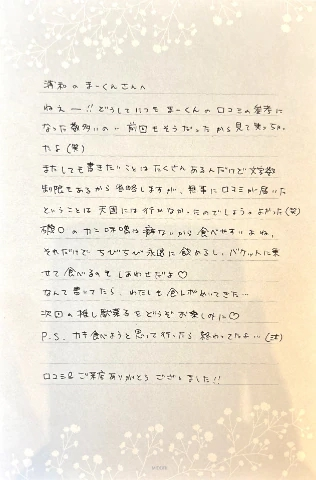 浦和のまーくんさんへ
ねえー!! どうしていつもまーくんの口コミの参考に
なった数多いの!! 前回もそうだったから見て笑っちゃっ
たよ(笑)
またしても書きたいことはたくさんあるんだけど文字数
制限もあるから省略しますが、無事に口コミが届いた
ということは天国には行かなかったのでしょう。よかった(笑)
磯〇のカニ味噌は癖ないから食べやすいよね。
それだけでちびちび永遠に飲めるし、バケットに乗
せて食べるのもしあわせだよ♡
なんて書いてたら、わたしも食レポめいてきた…
次回の推し献立をどうぞお楽しみに♡
P.S. カキ食べようと思って行ったら終わってたよ…(泣)
口コミ& ご来店ありがとうございました!!